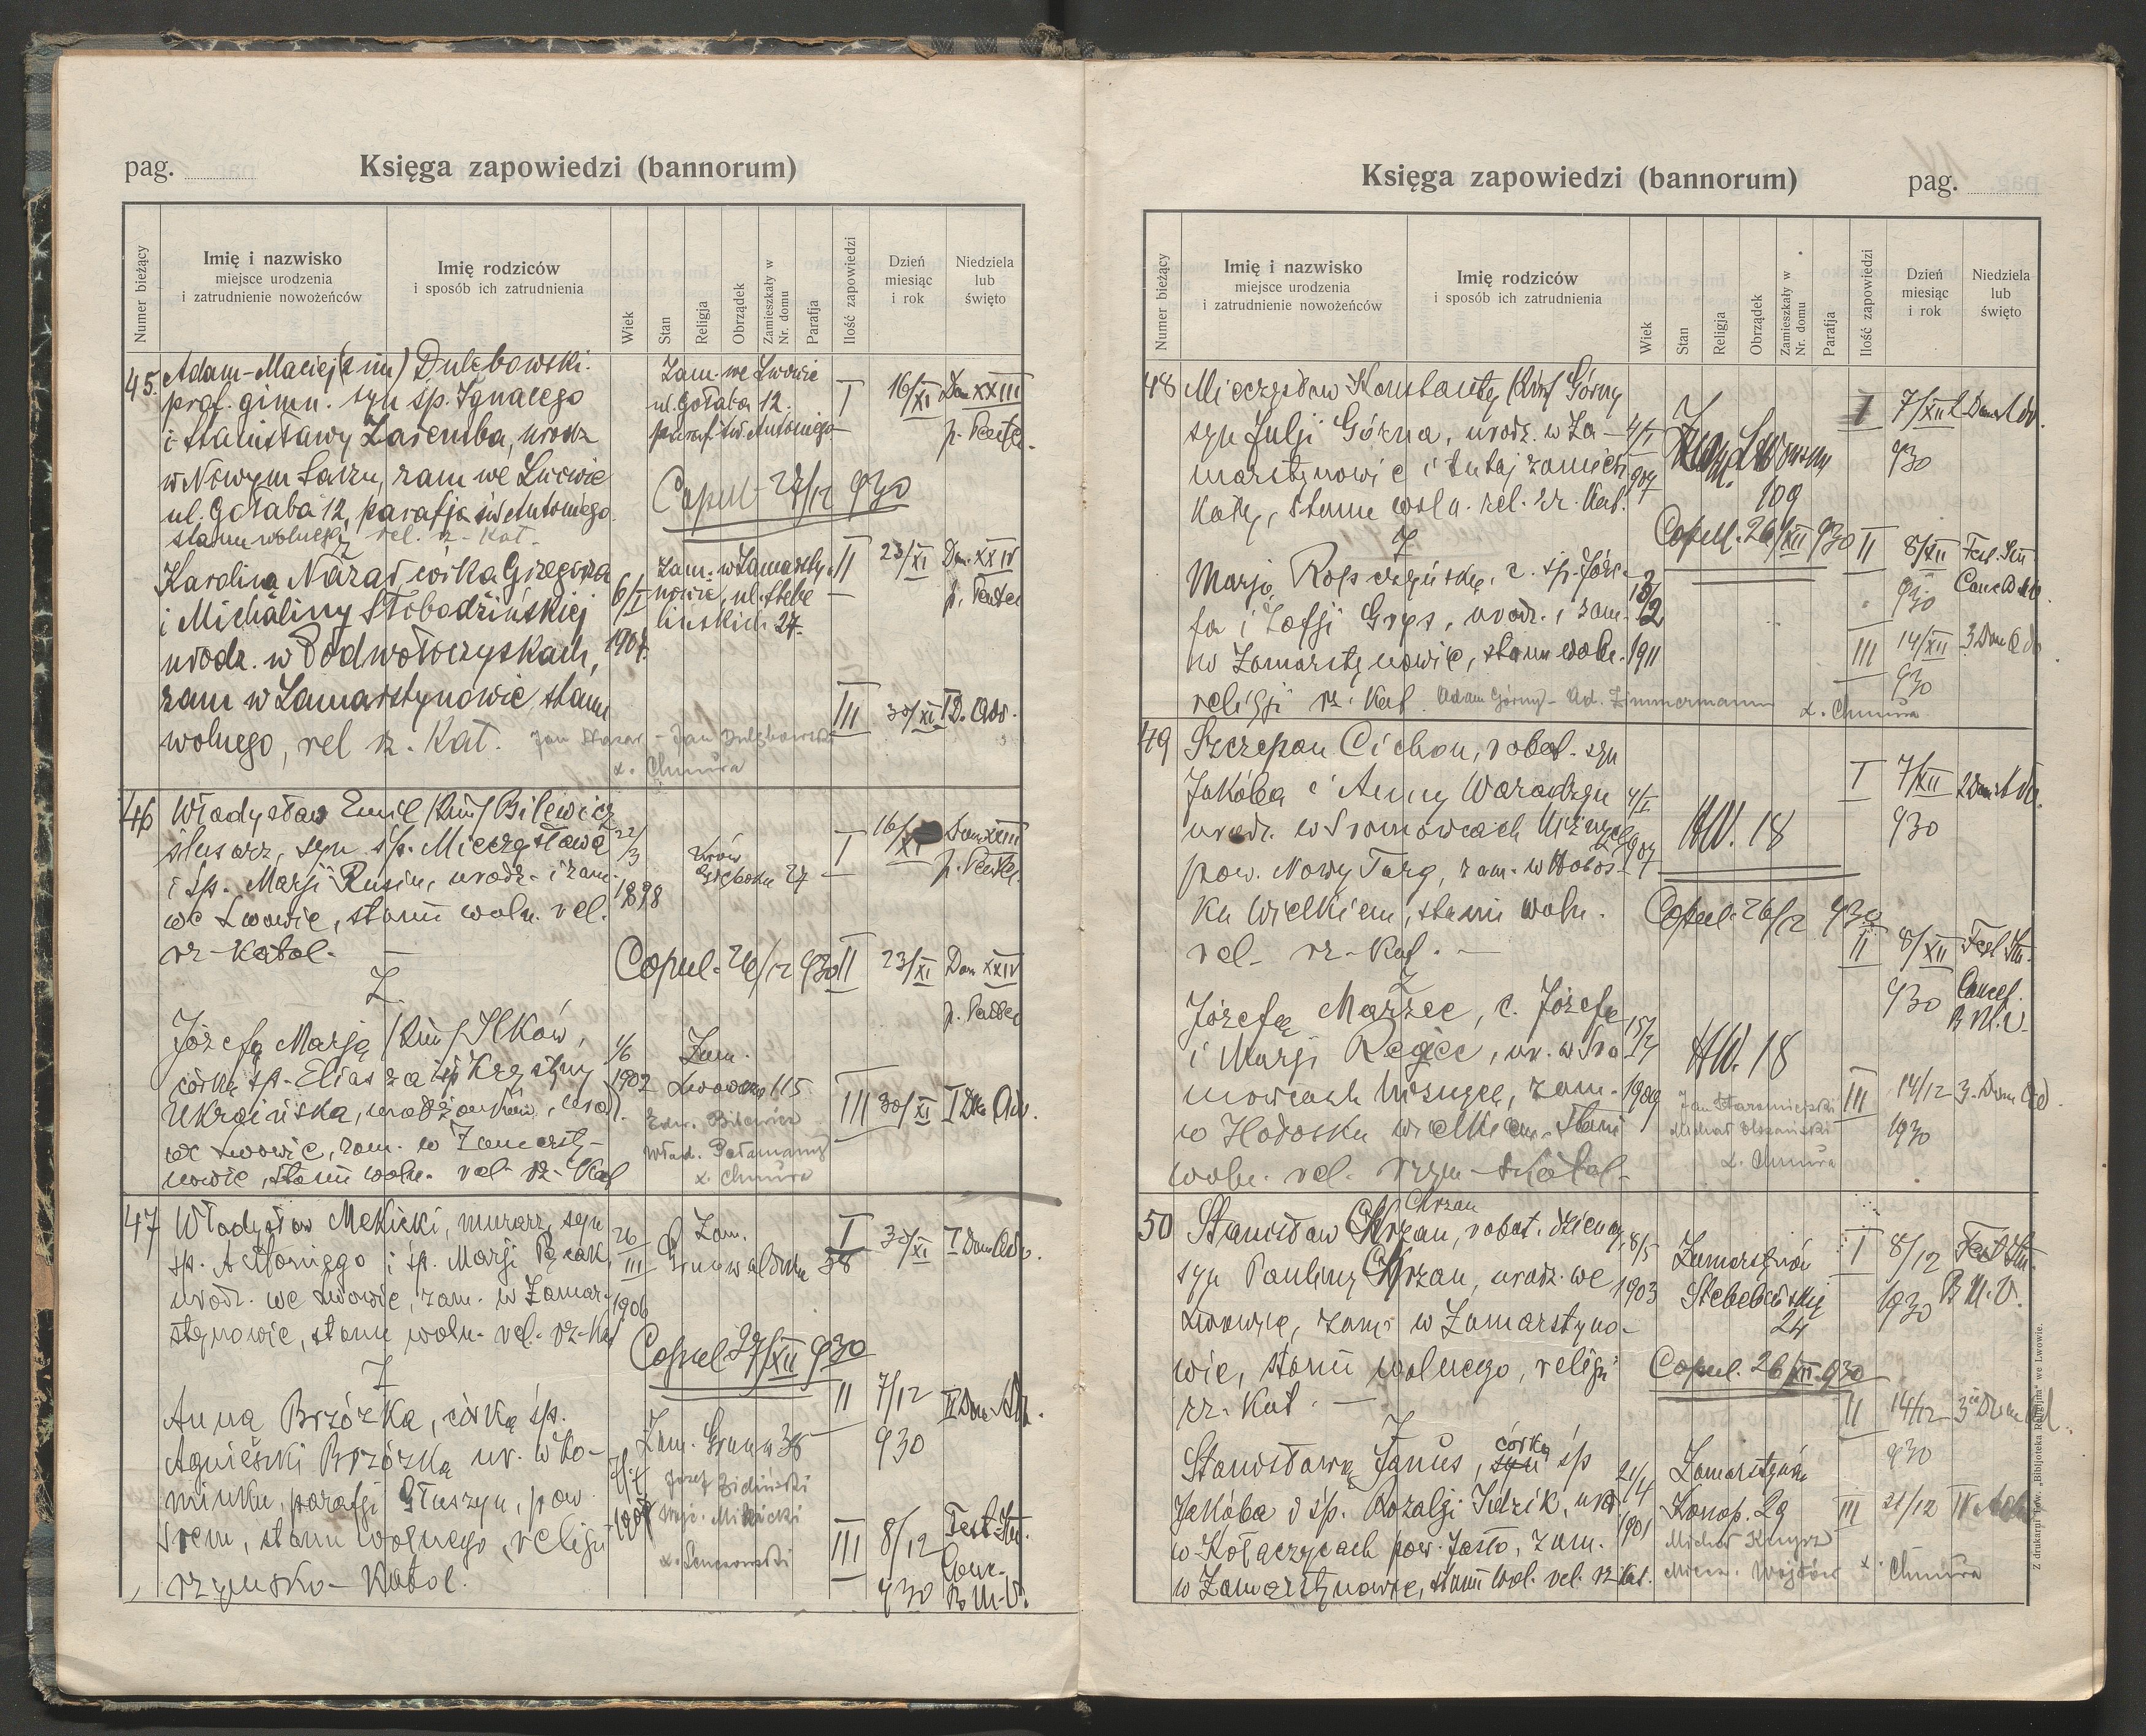 pag.
Księga zapowiedzi (bannorum)
Numer bieżący
Imię i nazwisko
miejsce urodzenia
i zatrudnienie nowożeńców
Imię rodziców
i sposób ich zatrudnienia
Wiek
Stan
Religja
Obrządek
Zamieszkały w
Nr. domu
Parafja
Ilość zapowiedzi
Dzień
miesiąc
i rok
Niedziela
lub
święto
45. Adam-Maciej (2 im) Dulębowski
prof. gimn. syn śp. Ignacego
i Stanisławy Zaremba, urodz
w Nowym Sączu, zam we Lwowie
ul. Gołąba 12, parafja św Antoniego
stanu wolnego, rel. rz-kat.
Zam. we Lwowie
ul. Gołąba 12.
paraf. św. Antoniego
I 16/XI Dom XXIII
p. Pente.
Copul. 27/12 930
Z
Karolina Nazar córka Grzegorza
i Michaliny Słobodzińskiej
urodz. w Podwołoczyskach,
zam w Zamarstynowie stanu
wolnego, rel rz. Kat.
6/I
1907.
Zam. w Zamarsty-
nowie, ul. Stebe
lińskich 27.
II 23/XI Dom. XXIV
p. Pentec
III 30/XI I D. Adv.
Jan Nazar - Jan Dulębowski
x. Chmura
46 Władysław Emil (2 im) Bilewicz
ślusarz, syn śp. Mieczysława
i śp. Marji Rusin, urodz. i zam.
we Lwowie, stanu woln. rel.
rz-katol.
22/3
1898
Lwów
27
I 16/XI Dom XXIII
p. Pentec.
Copul. 26/12 930
II 23/XI Dom XXIV
p. Pentec
Z
Józefą Marją (2 im) Ilków,
córką śp. Eliasza i śp Krystyny
Ukraińska, urodz.
we Lwowie, zam. w Zamarsty-
nowie, stanu woln. rel- rz-Kat
1902
Zam.
Lwowska 115
III 30/XI I Do Adv.
Edw. Bilewicz
Wład.
x. Chmura
47 Władysław Mekicki, murarz, syn
śp. Antoniego i śp. Marji
urodz. we Lwowie, zam. w Zamar-
stynowie, stanu woln. rel. rz-Kat
26
III
1906
Zam.
Grunwaldzka 38
I 30/XI I Dom Adv.
Copul 27/XII 930
Z
Anna Brzózka, córką śp.
Agnieszki Brzózką ur. w Ko-
minku, parafji Głuszyn, pow
Śrem, stanu wolnego, religji
rzymsko-Katol.
Zam. Grunw 38
II 7/12 II Dom Adv.
930
Józef
x.
III 8/12 Fest. Im.
930 Conc.
B M. V.
Księga zapowiedzi (bannorum)
pag.
Numer bieżący
Imię i nazwisko
miejsce urodzenia
i zatrudnienie nowożeńców
Imię rodziców
i sposób ich zatrudnienia
Wiek
Stan
Religja
Obrządek
Zamieszkały w
Nr. domu
Parafja
Ilość zapowiedzi
Dzień
miesiąc
i rok
Niedziela
lub
święto
48 Mieczysław Konstanty (2 im) Górny
syn Julji Górna, urodz. w Za-
marstynowie i tutaj zamiesz
kały, stanu woln. rel. rz. Kat.
4/I
907
109
I 7/XII 2 Dom Adv.
930
Copul. 26/XII 930
Z
Marją Ropszyńską, c. śp. Józe-
fa i Zofji Grys, urodz. i zam.
w Zamarstynowie, stanu woln.
religji rz. Kat.
1911
II 8/XII Fest. Im
930
III 14/XII 3 Dom Adv
930
Adam Górny - Ad. Zimmermann
x. Chmura
49 Szczepan Cichoń, robot. syn
Jakóba i Anny Waradzyn
urodz. w Sromowcach Niżnych
pow. Nowy Targ, zam. w Hołos-
ku Wielkiem, stanu woln.
rel- rz-Kat.
4/I
907
HW. 18
I 7/XII 2 Dom Adv.
930
Copul. 26/12 930
Z
Józefą Marzec, c. Józefa
i Marji Regiec, ur. w Sro
mowcach Niżnych, zam.
w Hołosku wielkiem, stanu
woln. rel. rzym-Katol.
1909
HW. 18
II 8/XII Fest Im.
930 Concep.
B M. V.
III 14/12 3. Dom Ad
1930
Jan Staromiejski
Michał
x. Chmura
50 Stanisław Chrzan, robot. dzienny,
Chrzan
syn Pauliny Chrzan, urodz. we
Lwowie, zam. w Zamarstyno-
wie, stanu wolnego, religji
rz. Kat.
8/5
1903
Zamarstynów
24
I 8/12 Fest Im.
1930 B M. V.
Copul. 26/XII 930
Z
Stanisławą Janus, syn córką śp
Jakóba i śp. Rozalji Jidzik, urdz
w Kołaczycach pow. Jasło, zam.
w Zamarstynowie, stanu wol. rel. rz kat.
21/4
1901
Zamarstynów
Konop. 29
II 14/12 3 Dom Ad.
930
III 21/12 IV Adv
Michał
Miecz. Wojtów x. Chmura
Z drukarni Tow. „Bibljoteka Religijna" we Lwowie.